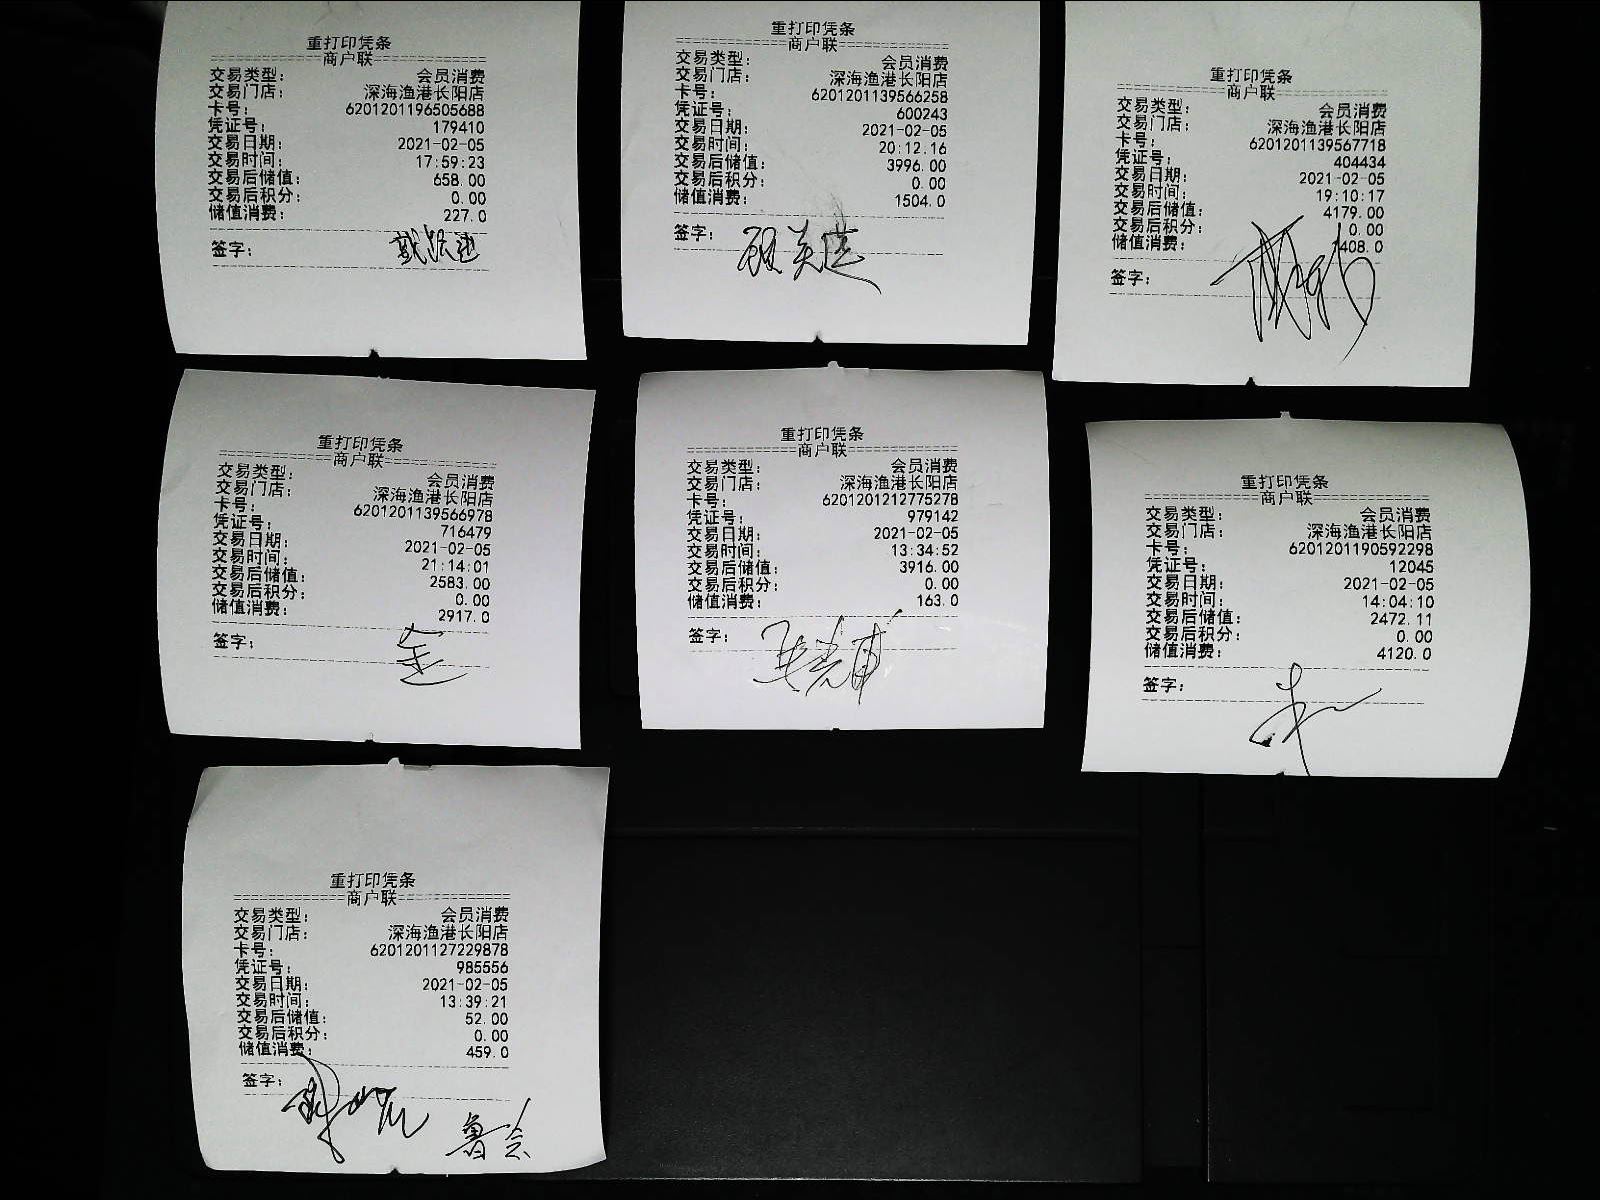 重打印凭条
商户联
交易类型: 会员消费
交易门店: 深海渔港长阳店
卡号: 6201201196505688
凭证号: 179410
交易日期: 2021-02-05
交易时间: 17:59:23
交易后储值: 658.00
交易后积分: 0.00
储值消费: 227.0
签字:
重打印凭条
商户联
交易类型: 会员消费
交易门店: 深海渔港长阳店
卡号: 6201201139566258
凭证号: 600243
交易日期: 2021-02-05
交易时间: 20:12:16
交易后储值: 3996.00
交易后积分: 0.00
储值消费: 1504.0
签字:
重打印凭条
商户联
交易类型: 会员消费
交易门店: 深海渔港长阳店
卡号: 6201201139567718
凭证号: 404434
交易日期: 2021-02-05
交易时间: 19:10:17
交易后储值: 4179.00
交易后积分: 0.00
储值消费: 1408.0
签字:
重打印凭条
商户联
交易类型: 会员消费
交易门店: 深海渔港长阳店
卡号: 6201201139566978
凭证号: 716479
交易日期: 2021-02-05
交易时间: 21:14:01
交易后储值: 2583.00
交易后积分: 0.00
储值消费: 2917.0
签字: 金
重打印凭条
商户联
交易类型: 会员消费
交易门店: 深海渔港长阳店
卡号: 6201201212775278
凭证号: 979142
交易日期: 2021-02-05
交易时间: 13:34:52
交易后储值: 3916.00
交易后积分: 0.00
储值消费: 163.0
签字:
重打印凭条
商户联
交易类型: 会员消费
交易门店: 深海渔港长阳店
卡号: 6201201190592298
凭证号: 12045
交易日期: 2021-02-05
交易时间: 14:04:10
交易后储值: 2472.11
交易后积分: 0.00
储值消费: 4120.0
签字:
重打印凭条
商户联
交易类型: 会员消费
交易门店: 深海渔港长阳店
卡号: 6201201127229878
凭证号: 985556
交易日期: 2021-02-05
交易时间: 13:39:21
交易后储值: 52.00
交易后积分: 0.00
储值消费: 459.0
签字:
鲁会